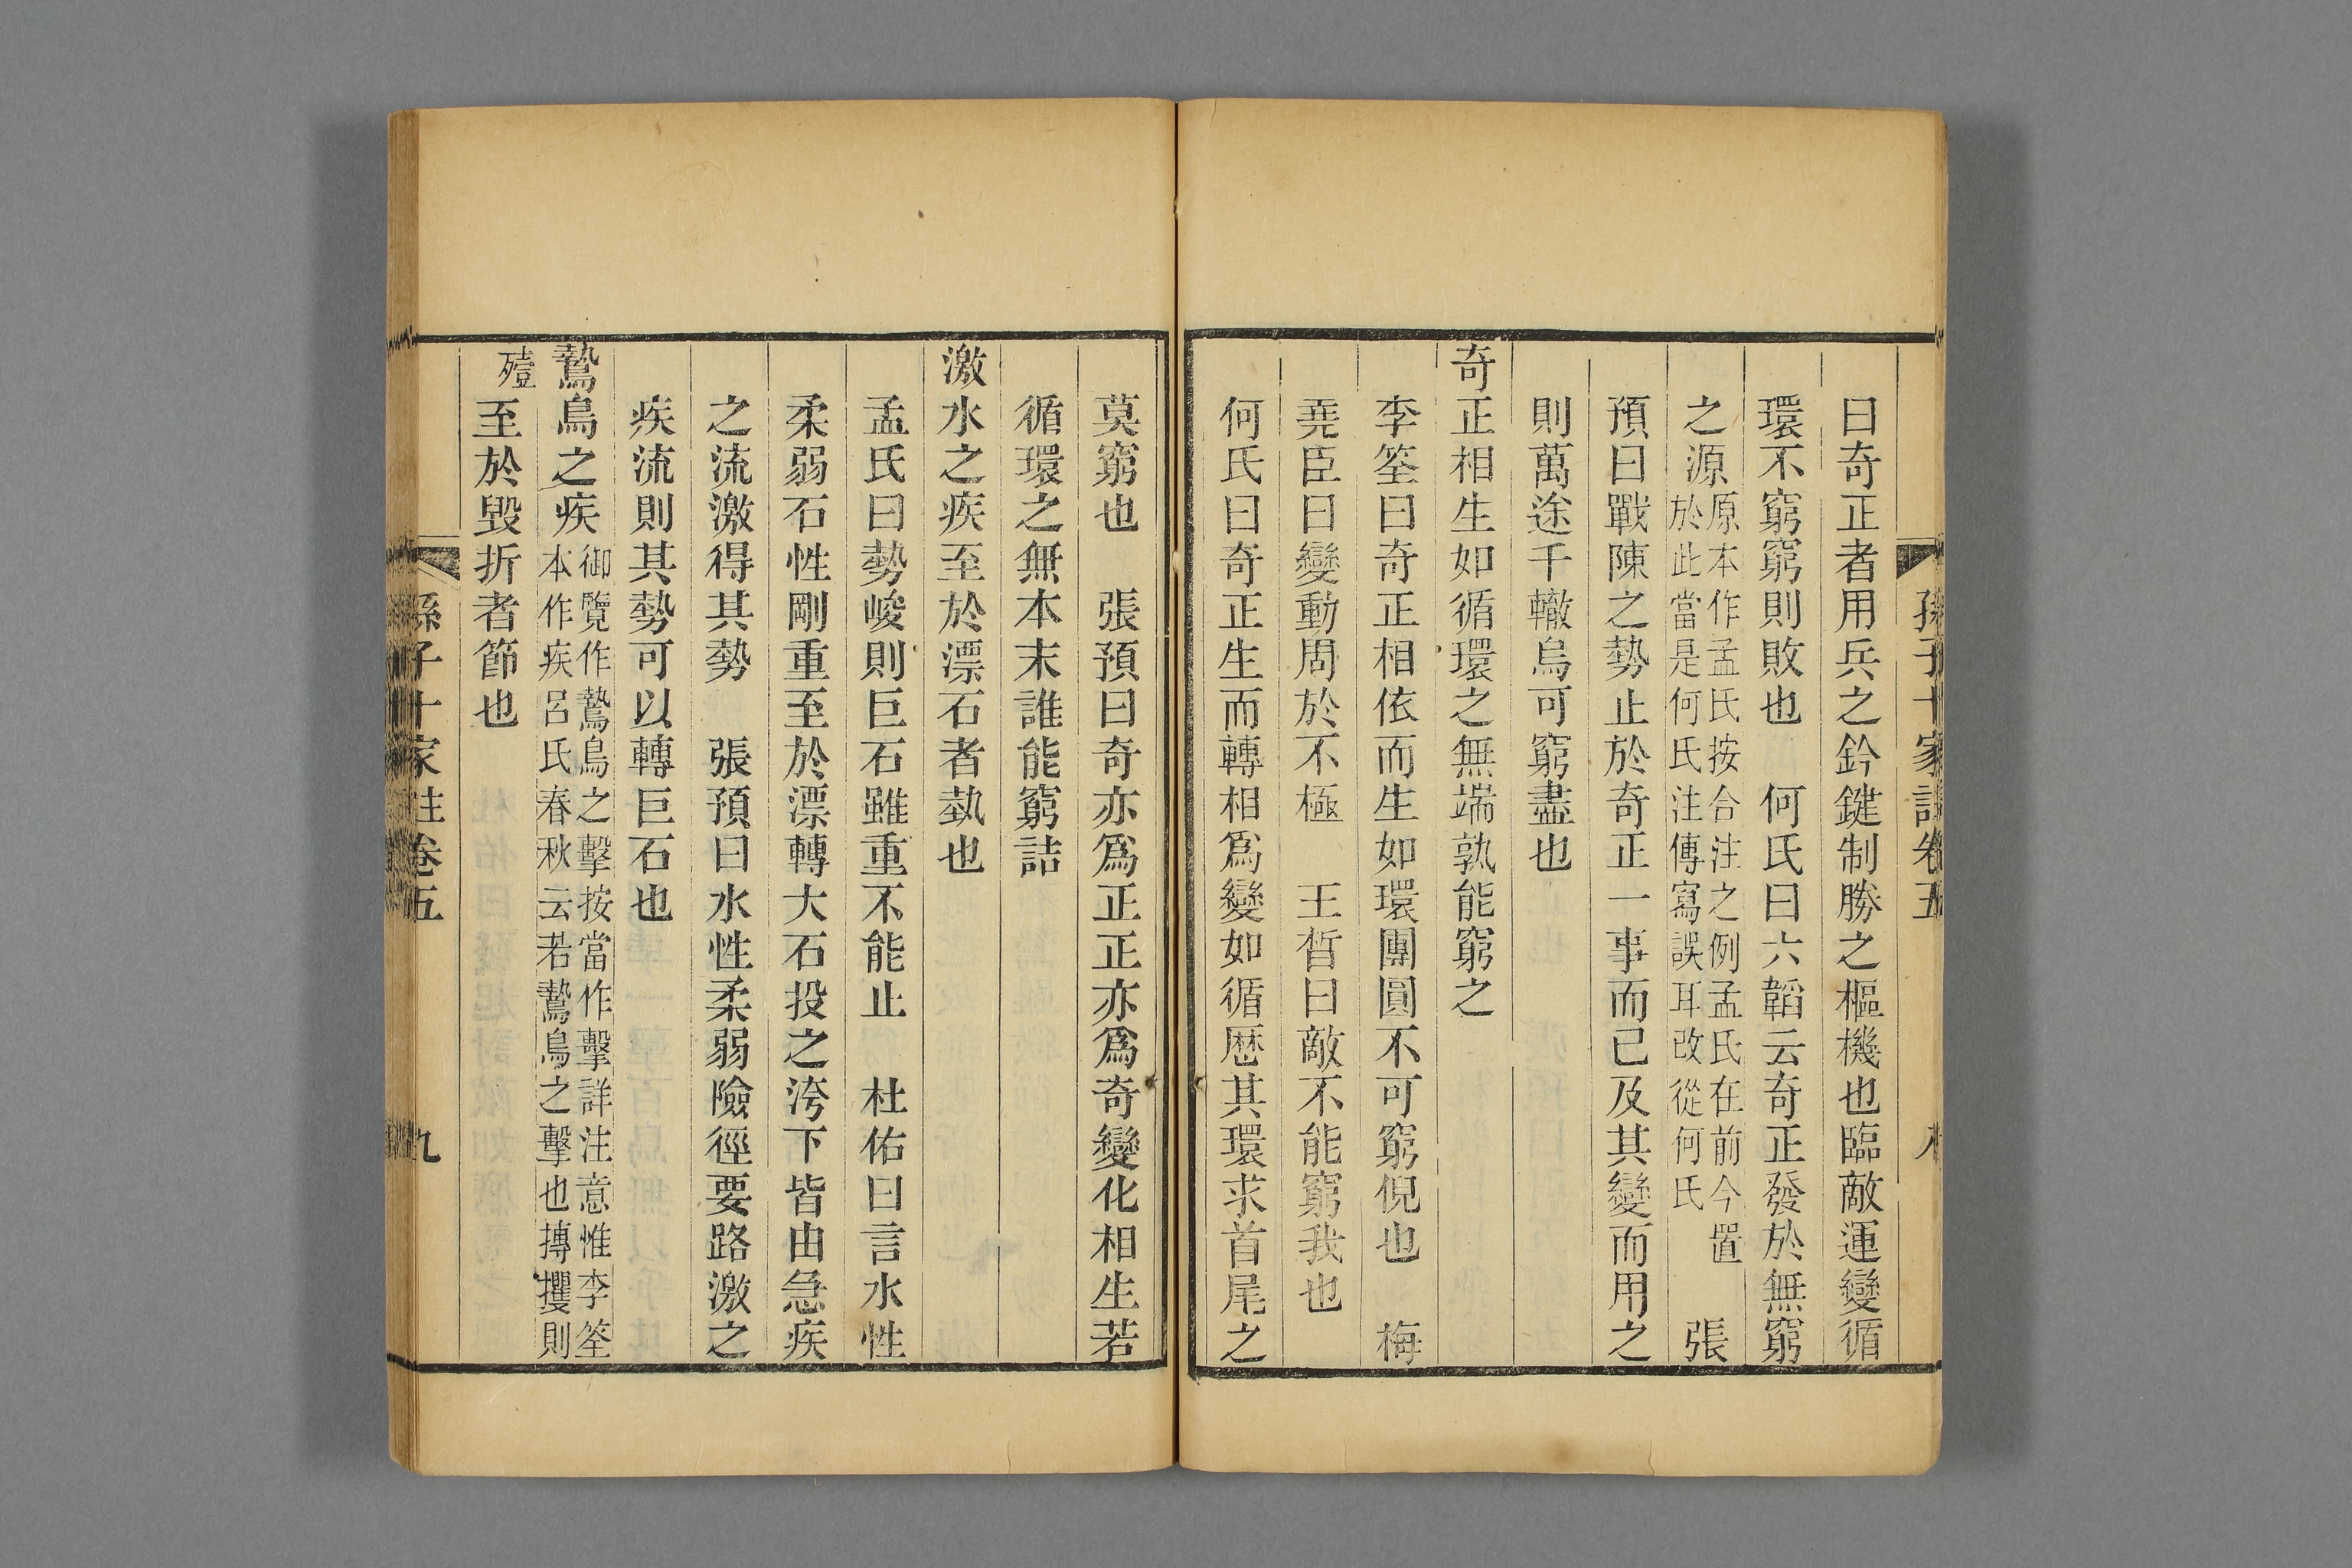 孫子十家註卷五 八
曰奇正者用兵之鈐鍵制勝之樞機也臨敵運變循
環不窮窮則敗也 何氏曰六韜云奇正發於無窮
之源原本作孟氏按合注之例孟氏在前今置於此當是何氏注傳寫誤耳改從何氏 張
預曰戰陳之勢止於奇正一事而已及其變而用之
則萬途千轍烏可窮盡也
奇正相生如循環之無端孰能窮之
李筌曰奇正相依而生如環團圓不可窮倪也 梅
堯臣曰變動周於不極 王晳曰敵不能窮我也
何氏曰奇正生而轉相爲變如循歴其環求首尾之
莫窮也 張預曰奇亦爲正正亦爲奇變化相生若
循環之無本末誰能窮詰
激水之疾至於漂石者埶也
孟氏曰勢峻則巨石雖重不能止 杜佑曰言水性
柔弱石性剛重至於漂轉大石投之洿下皆由急疾
之流激得其勢 張預曰水性柔弱險徑要路激之
疾流則其勢可以轉巨石也
鷙鳥之疾御覽作鷙鳥之擊按當作擊詳注意惟李筌本作疾呂氏春秋云若鷙鳥之擊也搏攫則
殪至於毀折者節也
孫子十家註卷五 九